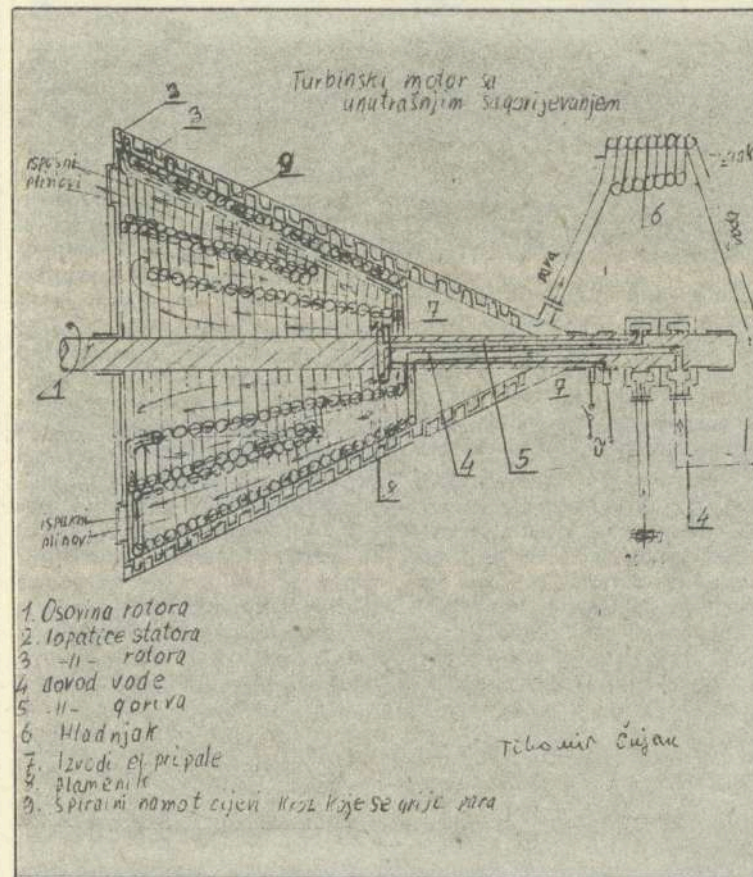 Turbinski motor sa
unutrašnjim sagorijevanjem
2
3
9
ispušni
plinovi
6
para
voda
7
1
7
4
5
8
4
ispušni
plinovi
1. Osovina rotora
2. lopatice statora
3 -11- rotora
4 dovod vode
5 -11- goriva
6 Hladnjak
7. Izvodi el pripale
8. plamenik
9. Spiralni namot cijevi kroz koje se grije para
Tihomir Čujak